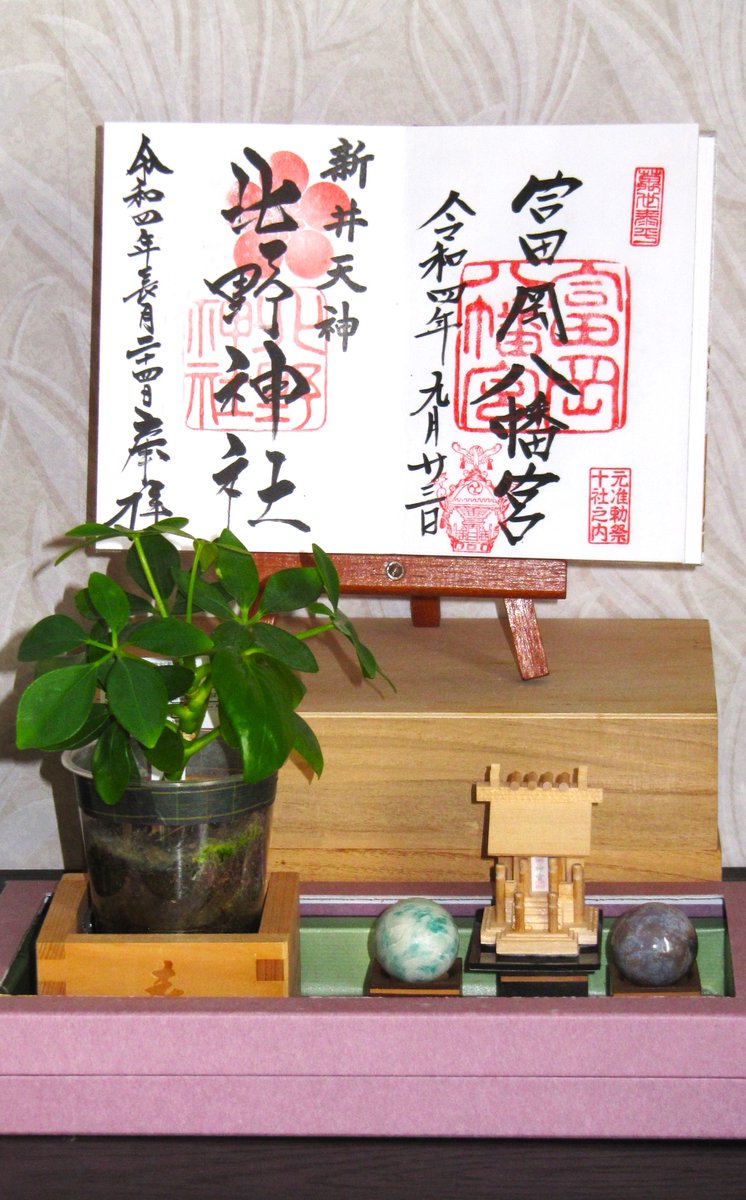 萬世泰平
富岡八幡宮
富岡
八幡宮
元准勅祭
十社之内
令和四年九月廿三日
新井天神
北野神社
北野
神社
令和四年長月二十四日奉拝